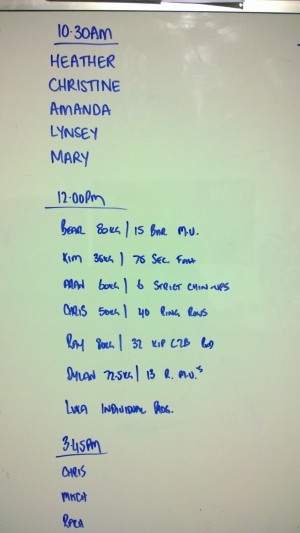 10.30AM
HEATHER
CHRISTINE
AMANDA
LYNSEY
MARY
12.00PM
BEAR 80KG | 15 BAR M.U.
KIM 35KG | 70 SEC.
ARAN 60KG | 6 STRICT CHIN-UPS
CHRIS 50KG | 40 RING ROWS
RAY 80KG | 32 KIP C2B
DYLAN 72.5KG | 13 R. M.U.'S
LUKA INDIVIDUAL
3.45PM
CHRIS
MITCH